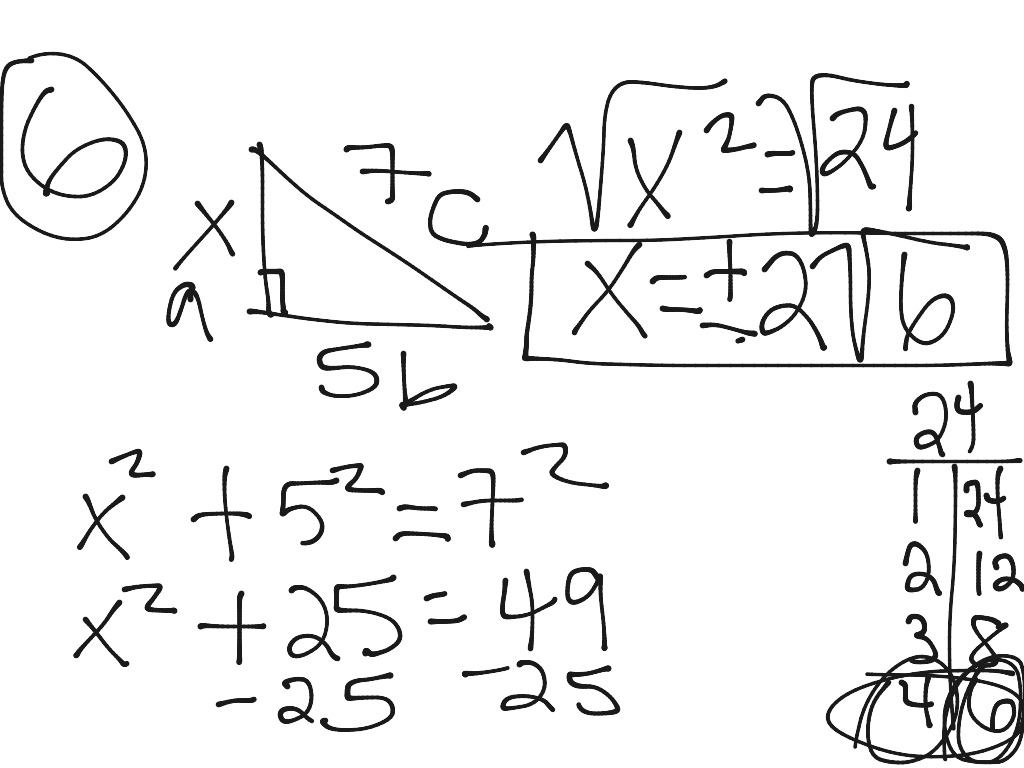 6
7 c
x
a
5 b
√x² = √24
x = ± 2√6
x² + 5² = 7²
x² + 25 = 49
- 25 - 25
24
1 24
2 12
3 8
4 6